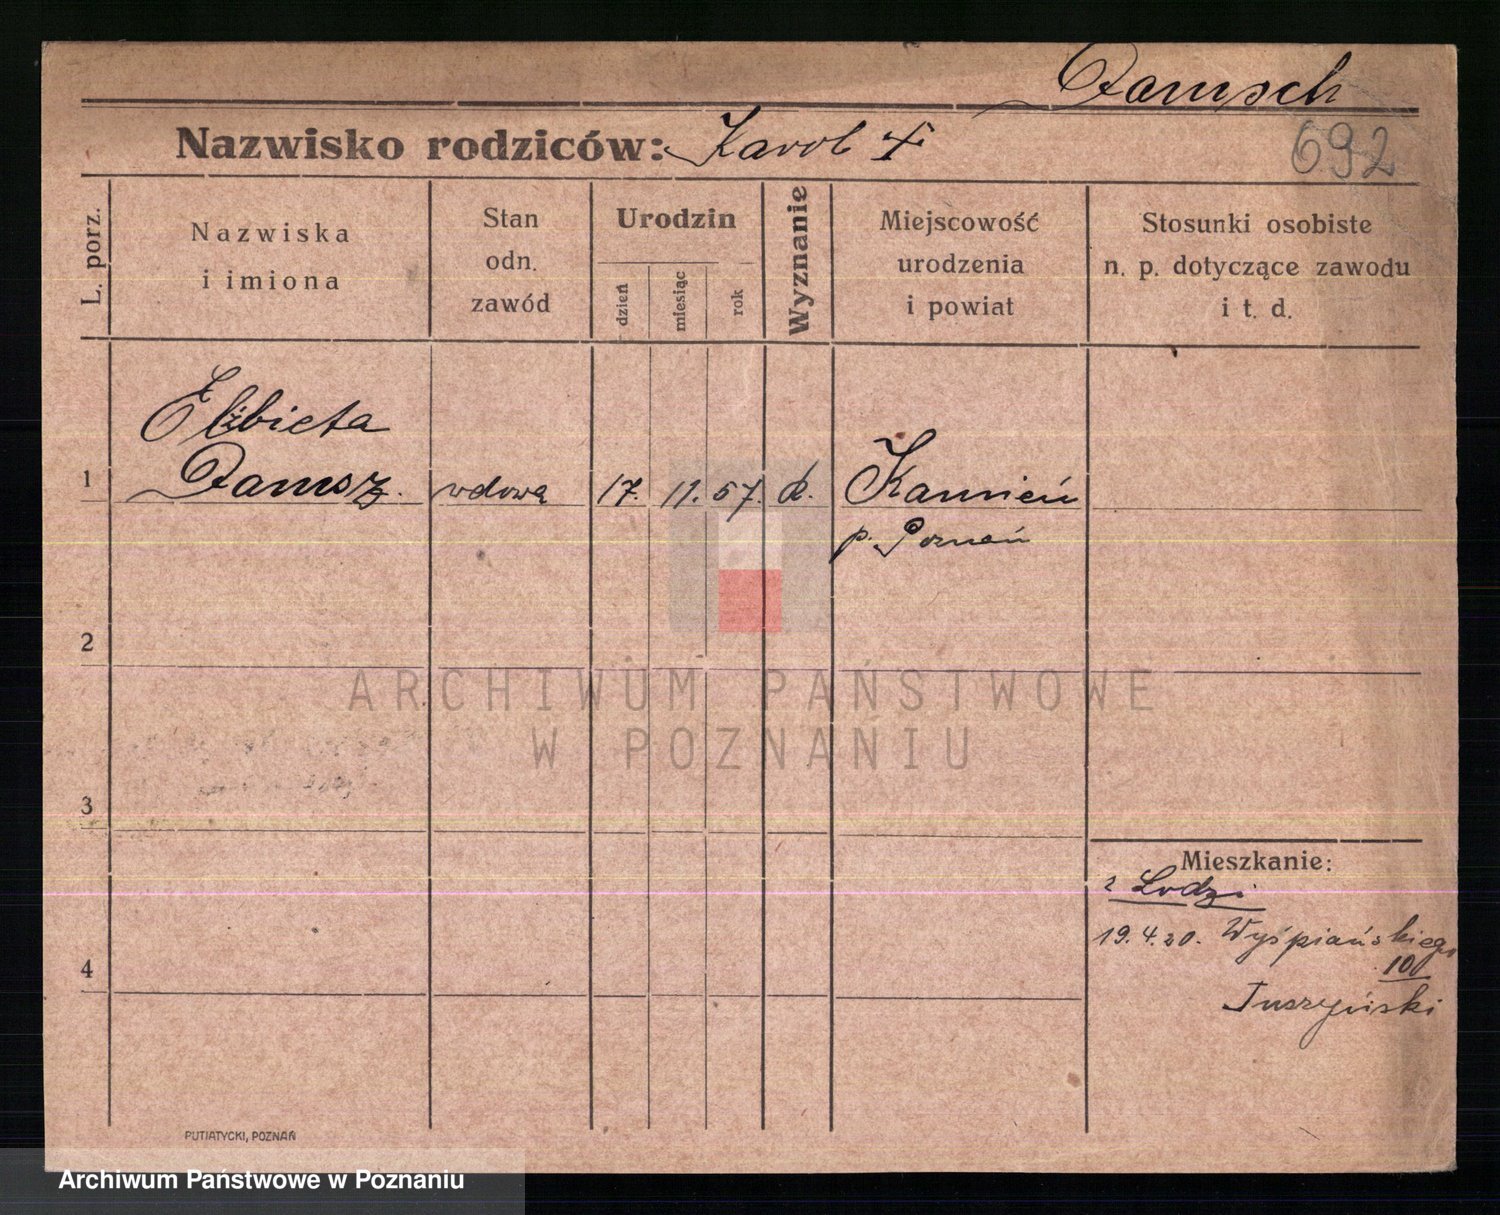 Damsch
Nazwisko rodziców: Karol †
692
L. porz.
Nazwiska
i imiona
Stan
odn.
zawód
Urodzin
dzień
miesiąc
rok
Wyznanie
Miejscowość
urodzenia
i powiat
Stosunki osobiste
n. p. dotyczące zawodu
i t. d.
Elżbieta
1 Damsz. wdowa 17. 11. 57. k. Kamień
p. Poznań
2
ARCHIWUM PAŃSTWOWE
W POZNANIU
3
Mieszkanie:
z Łodzi
19.4.20. Wyśpiańskiego
10
4
Tuszyński
PUTIATYCKI, POZNAŃ
Archiwum Państwowe w Poznaniu